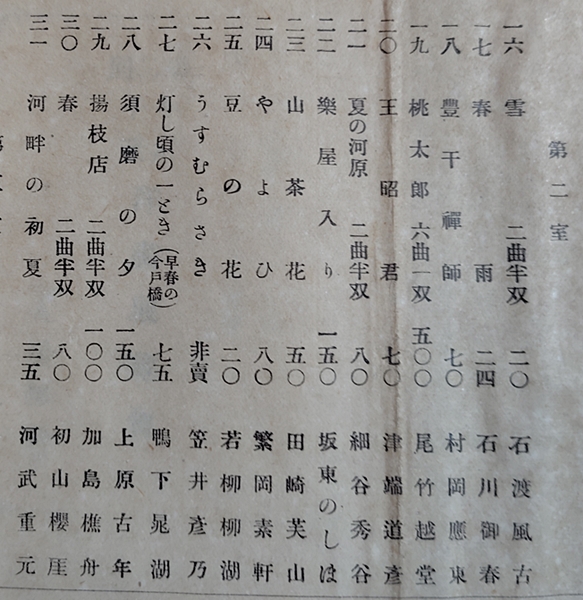 第二室
一六 雪 二曲半双 二〇 石渡風古
一七 春雨 二四 石川御春
一八 豊干禪師 七〇 村岡應東
一九 桃太郎 六曲一双 五〇〇 尾竹越堂
二〇 王昭君 七〇 津端道彥
二一 夏の河原 二曲半双 八〇 細谷秀谷
二二 樂屋入り 一五〇 坂東のしほ
二三 山茶花 五〇 田崎芙山
二四 やよひ 八〇 繁岡素軒
二五 豆の花 二〇 若柳柳湖
二六 うすむらさき 非賣 笠井彥乃
二七 灯し頃の一とき (早春の今戶橋) 七五 鴨下晁湖
二八 須磨の夕 一五〇 上原古年
二九 揚枝店 二曲半双 一〇〇 加島樵舟
三〇 春 二曲半双 八〇 初山櫻厓
三一 河畔の初夏 三五 河武重元